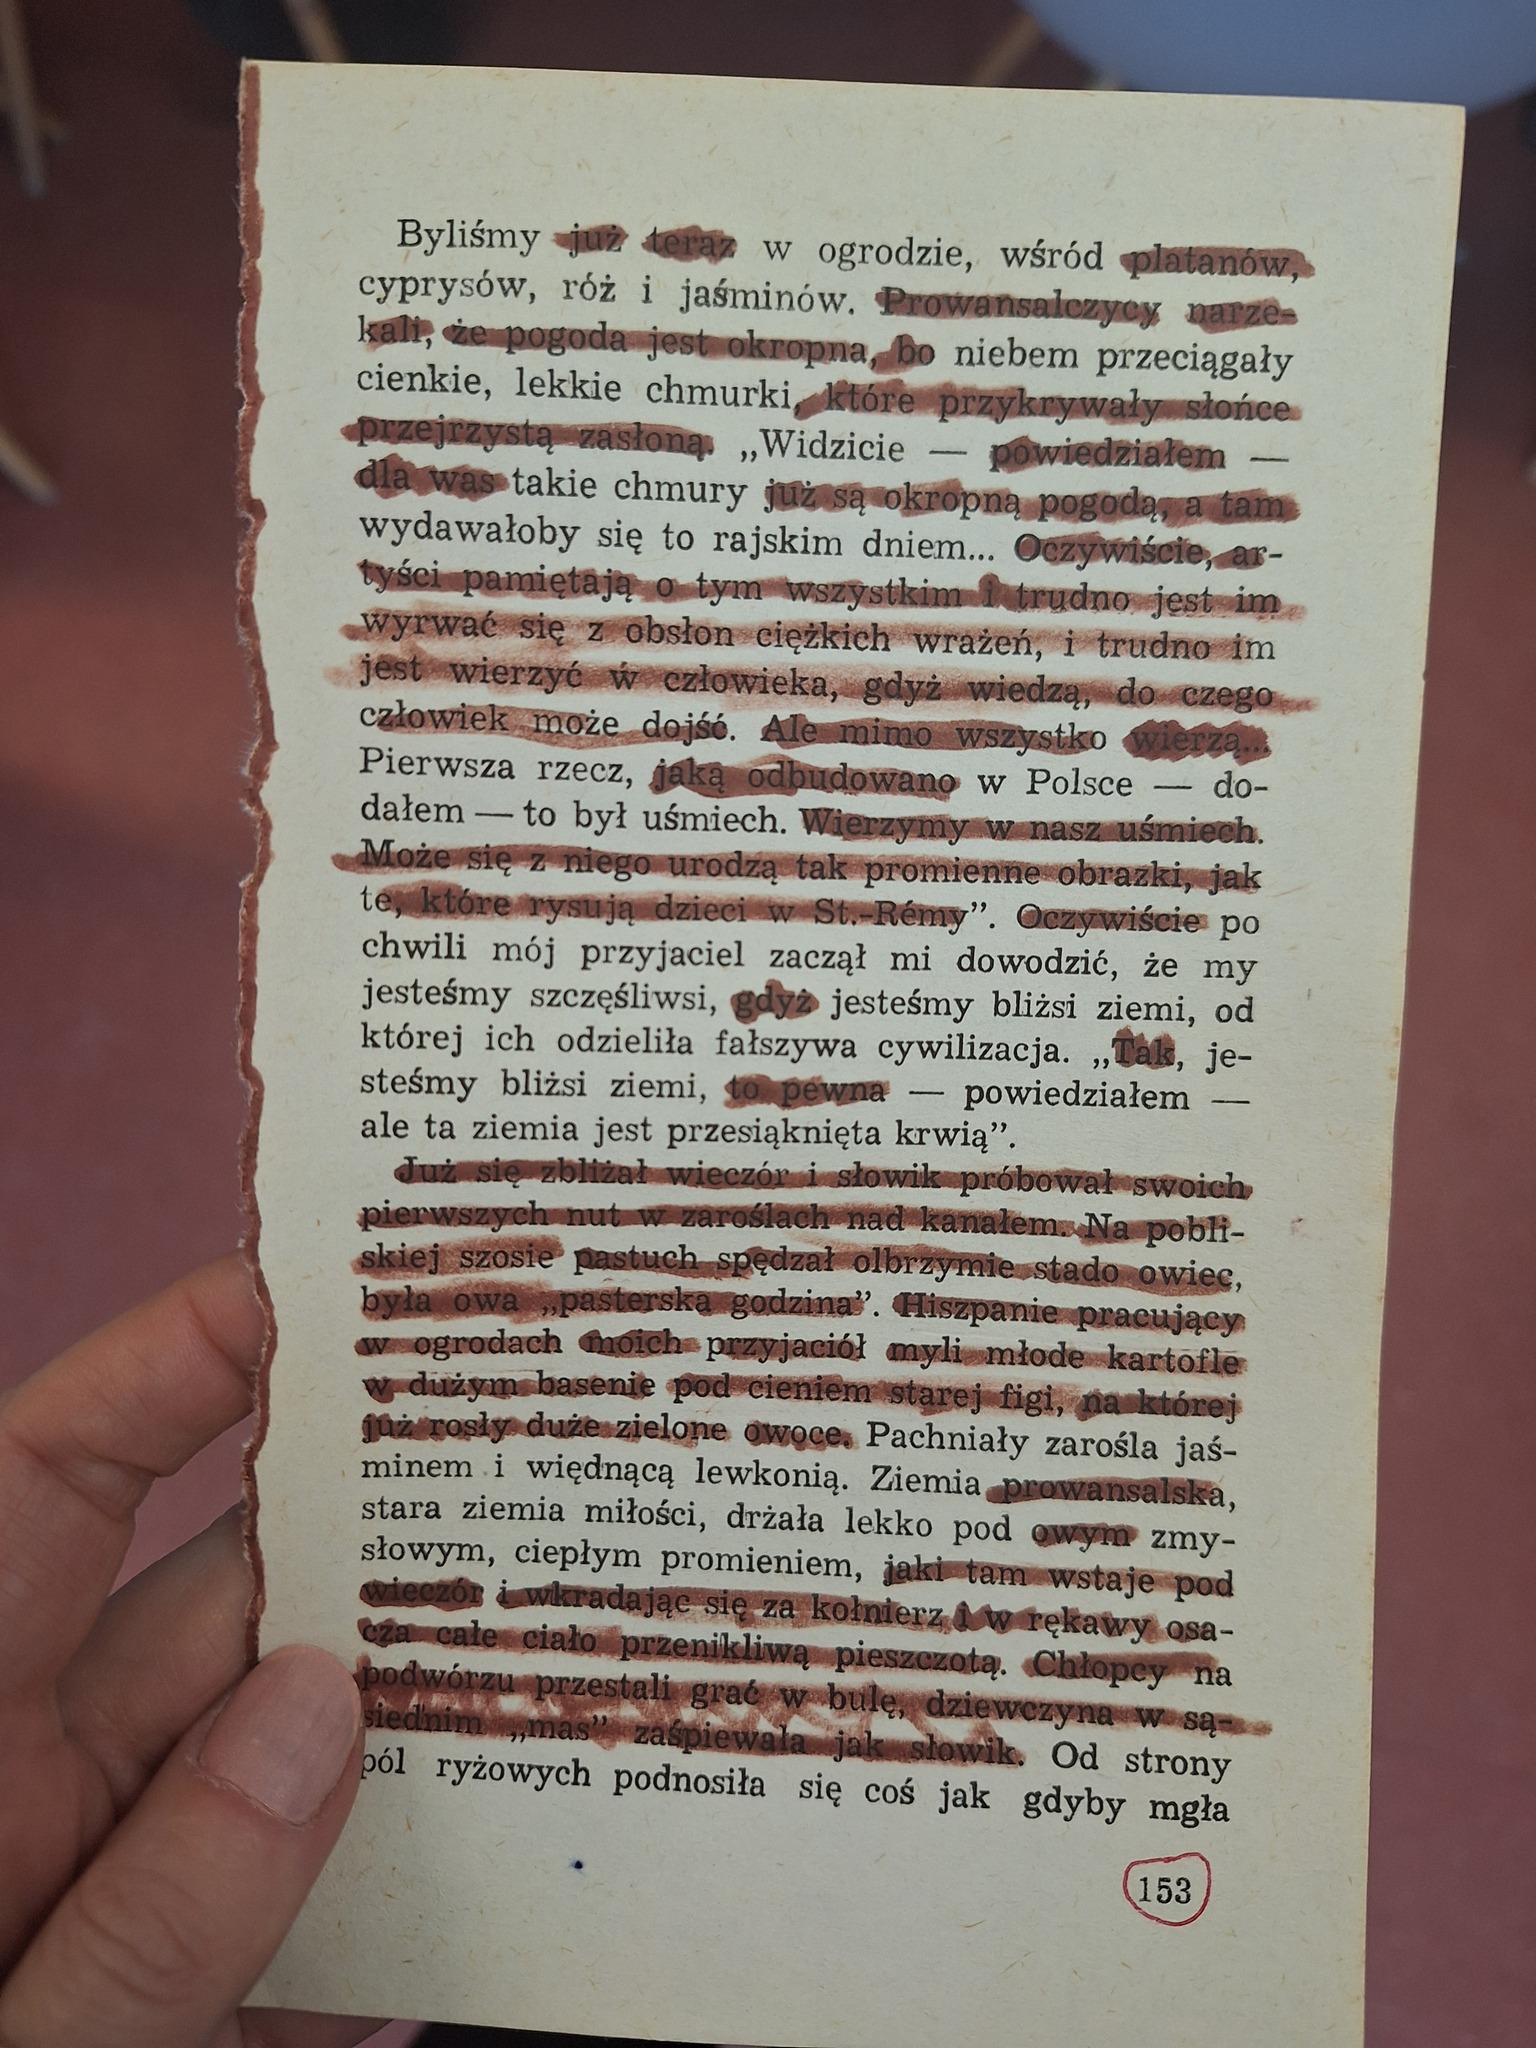 Byliśmy już teraz w ogrodzie, wśród platanów,
cyprysów, róż i jaśminów. Prowansalczycy narze-
kali, że pogoda jest okropna, bo niebem przeciągały
cienkie, lekkie chmurki, które przykrywały słońce
przejrzystą zasłoną. „Widzicie — powiedziałem —
dla was takie chmury już są okropną pogodą, a tam
wydawałoby się to rajskim dniem... Oczywiście, ar-
tyści pamiętają o tym wszystkim i trudno jest im
wyrwać się z obsłon ciężkich wrażeń, i trudno im
jest wierzyć w człowieka, gdyż wiedzą, do czego
człowiek może dojść. Ale mimo wszystko wierzą...
Pierwsza rzecz, jaką odbudowano w Polsce — do-
dałem — to był uśmiech. Wierzymy w nasz uśmiech.
Może się z niego urodzą tak promienne obrazki, jak
te, które rysują dzieci w St.-Rémy”. Oczywiście po
chwili mój przyjaciel zaczął mi dowodzić, że my
jesteśmy szczęśliwsi, gdyż jesteśmy bliżsi ziemi, od
której ich odzieliła fałszywa cywilizacja. „Tak, je-
steśmy bliżsi ziemi, to pewna — powiedziałem —
ale ta ziemia jest przesiąknięta krwią”.
Już się zbliżał wieczór i słowik próbował swoich
pierwszych nut w zaroślach nad kanałem. Na pobli-
skiej szosie pastuch spędzał olbrzymie stado owiec,
była owa „pasterska godzina”. Hiszpanie pracujący
w ogrodach moich przyjaciół myli młode kartofle
w dużym basenie pod cieniem starej figi, na której
już rosły duże zielone owoce. Pachniały zarośla jaś-
minem i więdnącą lewkonią. Ziemia prowansalska,
stara ziemia miłości, drżała lekko pod owym zmy-
słowym, ciepłym promieniem, jaki tam wstaje pod
wieczór i wkradając się za kołnierz i w rękawy osa-
cza całe ciało przenikliwą pieszczotą. Chłopcy na
podwórzu przestali grać w bulę, dziewczyna w są-
siednim „mas” zaśpiewała jak słowik. Od strony
pól ryżowych podnosiła się coś jak gdyby mgła
153